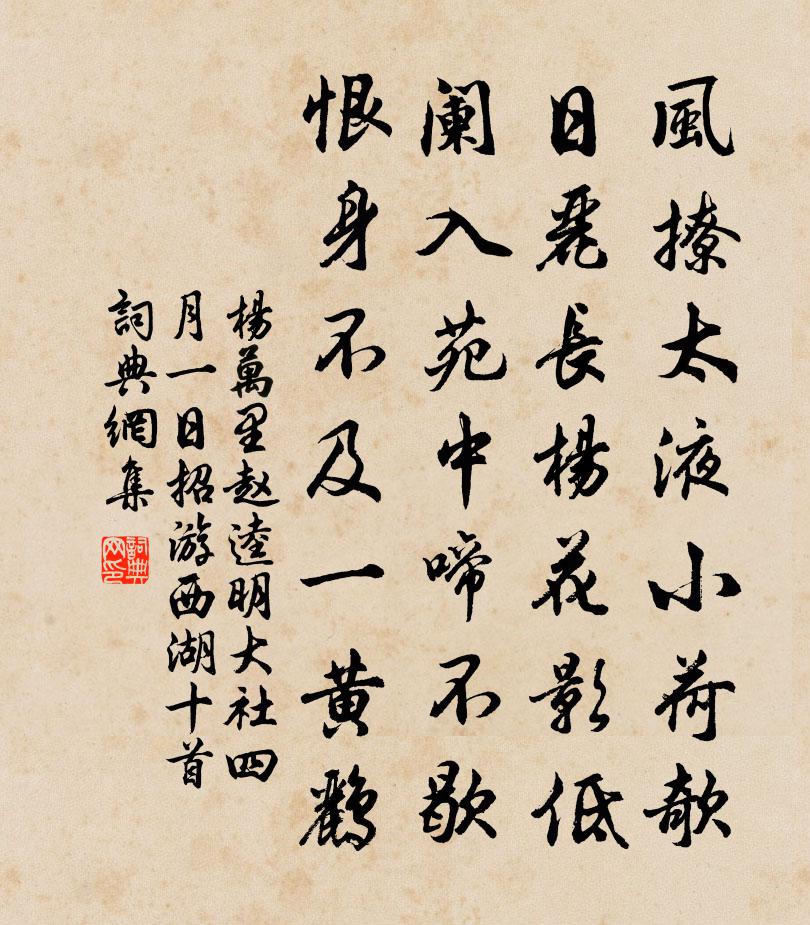 風撩太液小荷欹
日麗長楊花影低
阑入苑中啼不歇
恨身不及一黄鸝
楊萬里赵逵明大社四
月一日招游西湖十首
詞典網集
詞典
网印